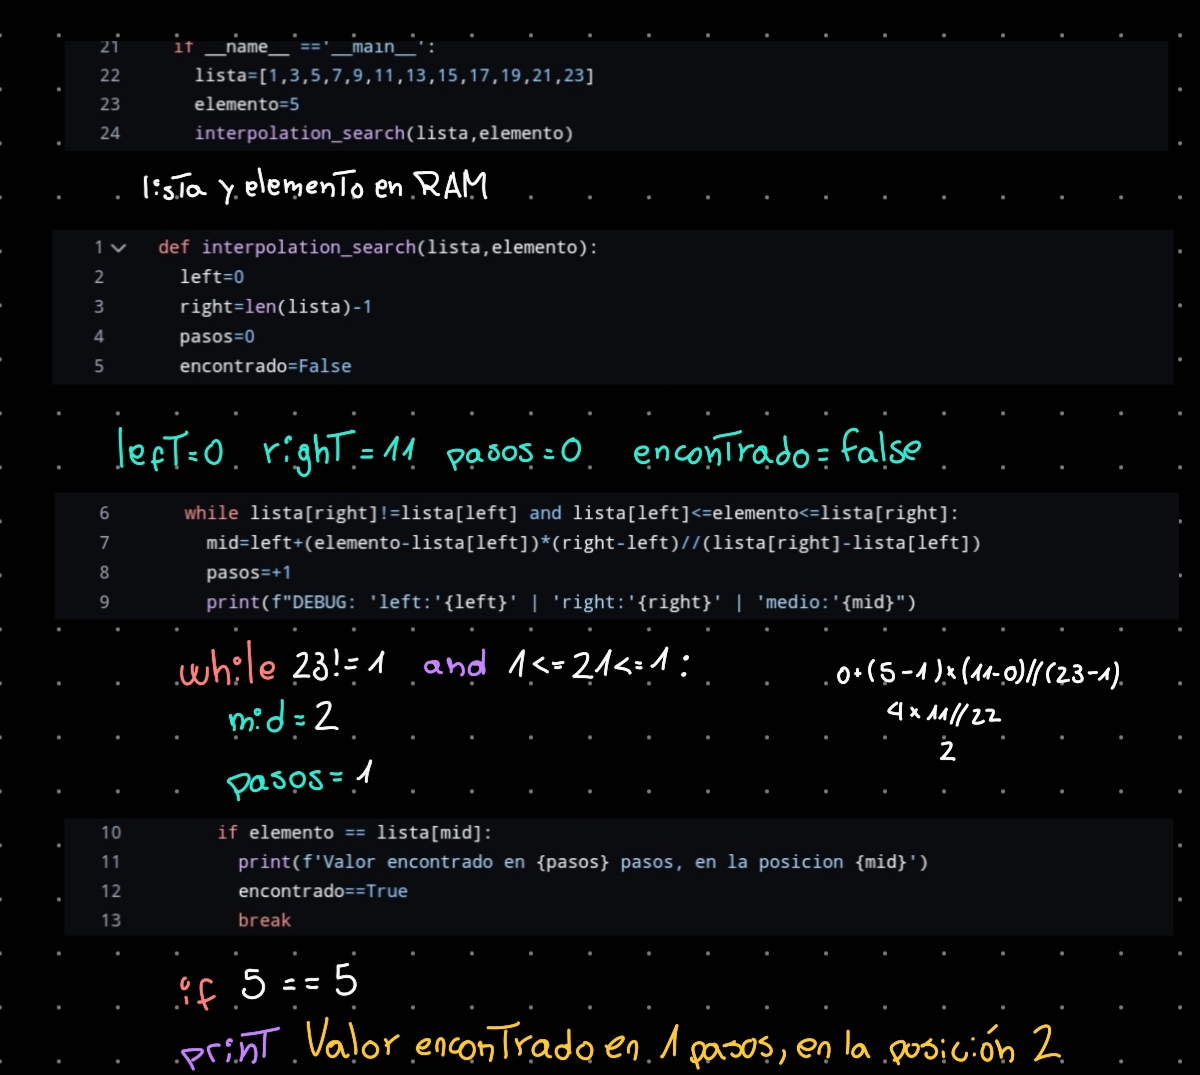 21 if __name__ =='__main__':
22 lista=[1,3,5,7,9,11,13,15,17,19,21,23]
23 elemento=5
24 interpolation_search(lista,elemento)
lista y elemento en RAM
1 def interpolation_search(lista,elemento):
2 left=0
3 right=len(lista)-1
4 pasos=0
5 encontrado=False
left=0 right=11 pasos=0 encontrado=false
6 while lista[right]!=lista[left] and lista[left]<=elemento<=lista[right]:
7 mid=left+(elemento-lista[left])*(right-left)//(lista[right]-lista[left])
8 pasos=+1
9 print(f"DEBUG: 'left:'{left}' | 'right:'{right}' | 'medio:'{mid}")
while 23!=1 and 1<=21<=1:
0+(5-1)×(11-0)//(23-1)
mid=2
4×11//22
2
pasos=1
10 if elemento == lista[mid]:
11 print(f'Valor encontrado en {pasos} pasos, en la posicion {mid}')
12 encontrado==True
13 break
if 5 == 5
print Valor encontrado en 1 pasos, en la posición 2